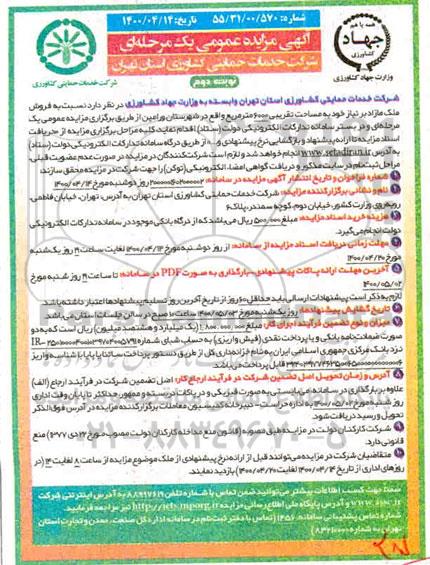 شماره: ۵۵/۳۱/۰۰/۵۷۰ تاریخ: ۱۴۰۰/۰۴/۱۴
همه با هم
جهاد
کشاورزی
وزارت جهاد کشاورزی
آگهی مزایده عمومی یک مرحله‌ای
شرکت خدمات حمایتی کشاورزی استان تهران
نوبت دوم
شرکت خدمات حمایتی کشاورزی
شرکت خدمات حمایتی کشاورزی استان تهران وابسته به وزارت جهاد کشاورزی در نظر دارد نسبت به فروش
ملک مازاد بر نیاز خود به مساحت تقریبی ۶۰۰۰ مترمربع واقع در شهرستان ورامین از طریق برگزاری مزایده عمومی یک
مرحله‌ای و در بستر سامانه تدارکات الکترونیکی دولت (ستاد) اقدام نماید کلیه مراحل برگزاری مزایده از دریافت
اسناد مزایده تا ارائه پیشنهاد و بازگشایی نرخ پیشنهادی و... از طریق درگاه سامانه تدارکات الکترونیکی دولت (ستاد)
به آدرس www.setadiran.ir انجام خواهد شد و لازم است شرکت‌کنندگان در مزایده در صورت عدم عضویت قبلی،
مراحل ثبت‌نام در سایت مذکور و دریافت گواهی امضاء الکترونیکی (توکن) را جهت شرکت در مزایده محقق سازند.
شماره فراخوان و تاریخ انتشار آگهی مزایده در سامانه: روز دوشنبه مورخ ۱۴۰۰/۰۴/۱۴
نام و نشانی برگزارکننده مزایده: شرکت خدمات حمایتی کشاورزی استان تهران به آدرس تهران، خیابان فاطمی،
روبه‌روی وزارت کشور، خیابان دوم، کوچه سمندر، پلاک ۶
هزینه خرید اسناد مزایده: مبلغ ۵۰۰,۰۰۰ ریال می‌باشد که از درگاه بانکی موجود در سامانه تدارکات الکترونیکی
دولت انجام می‌گیرد.
مهلت زمانی دریافت اسناد مزایده از سامانه: از روز دوشنبه مورخ ۱۴۰۰/۰۴/۱۴ لغایت ساعت ۱۹ روز یکشنبه
مورخ ۱۴۰۰/۰۴/۲۰
آخرین مهلت ارائه پاکات پیشنهادی-بارگذاری به صورت PDF در سامانه: تا ساعت ۱۹ روز شنبه مورخ
۱۴۰۰/۰۵/۰۲
لازم به ذکر است پیشنهادات ارسالی باید حداقل ۶۰ روز از تاریخ آخرین روز تسلیم پیشنهادها اعتبار داشته باشد
تاریخ گشایش پیشنهادها: روز یکشنبه مورخ ۱۴۰۰/۰۵/۰۳ ساعت ۱۰ صبح در سالن جلسات استان می‌باشد
میزان و نوع تضمین فرآیند اجرای کار: مبلغ ۱,۸۰۰,۰۰۰,۰۰۰ (یک میلیارد و هشتصد میلیون) ریال است که به دو
صورت ضمانت‌نامه بانکی و یا پرداخت نقدی (فیش واریزی) به حساب شبای شماره
نزد بانک مرکزی جمهوری اسلامی ایران به نام خزانه‌داری کل از طریق دستور پرداخت ساتنا یا پایا با شناسه واریز
قابل پرداخت می‌باشد.
آدرس و زمان تحویل اصل تضمین شرکت در فرآیند ارجاع کار: اصل تضمین شرکت در فرآیند ارجاع کار (الف)
علاوه بر بارگذاری در سامانه می‌بایستی به صورت فیزیکی و در پاکت دربسته و ممهور حداکثر تا پایان وقت اداری
روز شنبه مورخ ۱۴۰۰/۰۵/۰۲ به اداره حراست-دبیرخانه کمیسیون معاملات برگزارکننده مزایده در آدرس فوق الذکر
تحویل و رسید دریافت شود.
شرکت کارکنان دولت در مزایده طبق مصوبه (قانون منع مداخله کارکنان دولت مصوب مورخ ۲۲ دی ۱۳۳۷) منع
قانونی دارد.
متقاضیان شرکت در مزایده می‌توانند قبل از ارائه نرخ پیشنهادی از ملک موضوع مزایده از ساعت ۸ لغایت ۱۴ (در
روزهای اداری از تاریخ ۱۴۰۰/۰۴/۱۴ لغایت ۱۴۰۰/۰۴/۲۰) بازدید نمایند.
ضمناً جهت کسب اطلاعات بیشتر می‌توانید ضمن تماس با شماره تلفن ۸۸۹۹۷۶۱۹ به آدرس اینترنتی شرکت
و آدرس پایگاه ملی اطلاع رسانی مزایده http://iets.mporg.ir نیز مراجعه فرمایید.
شماره تماس پشتیبانی سامانه: ۱۴۵۶ (تماس با دفتر ثبت‌نام در سامانه اداره کل صنعت، معدن و تجارت استان
تهران به شماره ۸۳۲۶۱۰۰۰)